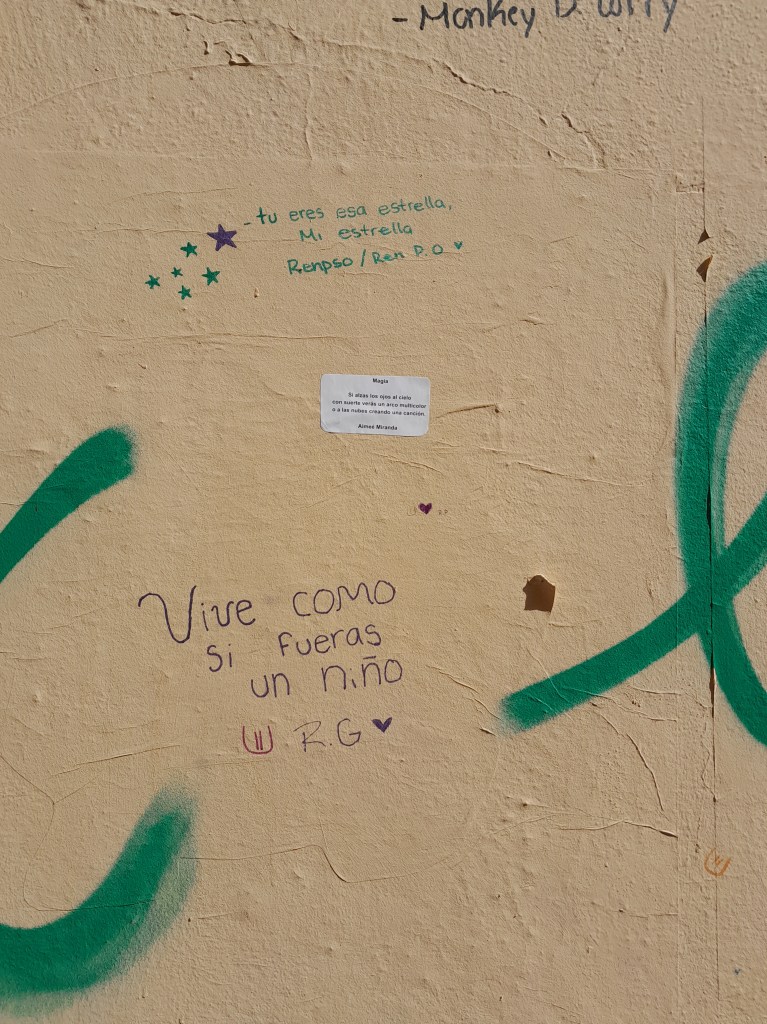 - Monkey D. Luffy
- tu eres esa estrella,
Mi estrella
Renpso / Ren P.O
Magia
Si alzas los ojos al cielo
con suerte verás un arco multicolor
o a las nubes creando una canción.
Aimee Miranda
Vive como
si fueras
un niño
R.G